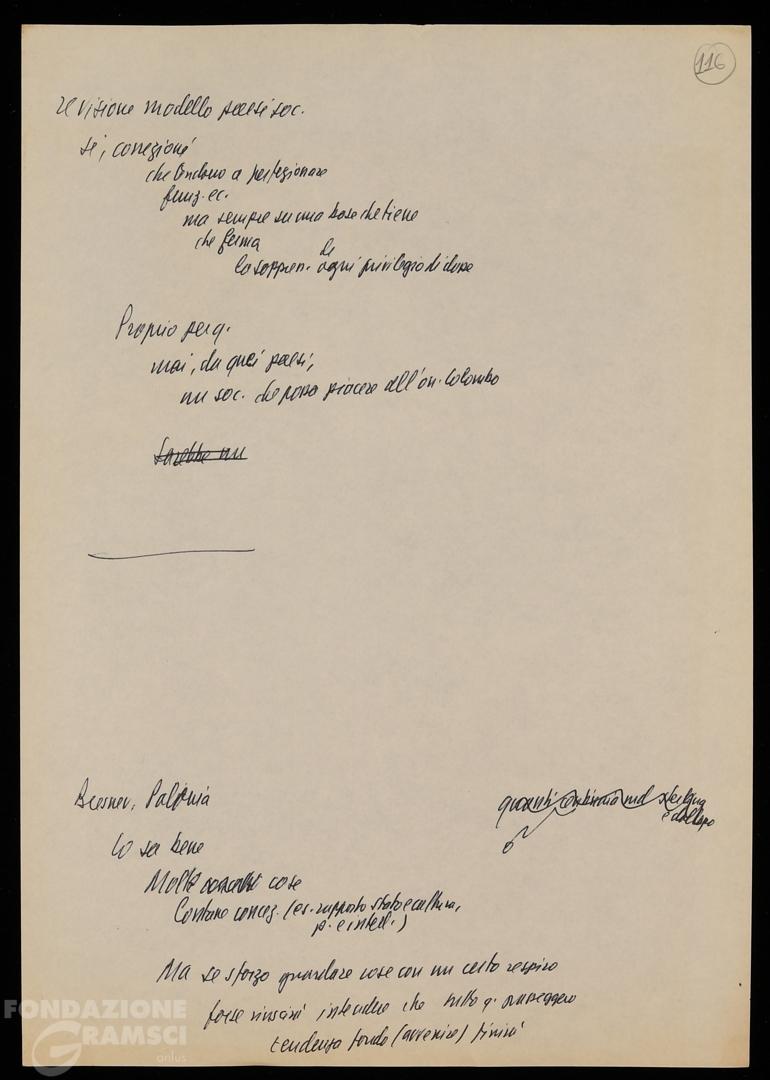 116
Revisione modello paesi soc.
Sì, correzioni
che tendono a perfezionare
funz. ec.
ma sempre su una base che tiene
che ferma
la soppres. di ogni privilegio di classe
Proprio perq.
mai, da quei paesi,
un soc. che possa piacere all'on. Colombo
Sarebbe un
Bresnev, Polonia
quanti
e dollaro
Lo sa bene
Molte cose
Lontane concez. (es. rapporto stato e cultura,
p. e intell.)
Ma se sforzo guardare cose con un certo respiro
forse riuscirà intendere che tutto q. passeggero
tendenza fondo (avvenire)
FONDAZIONE
GRAMSCI
onlus